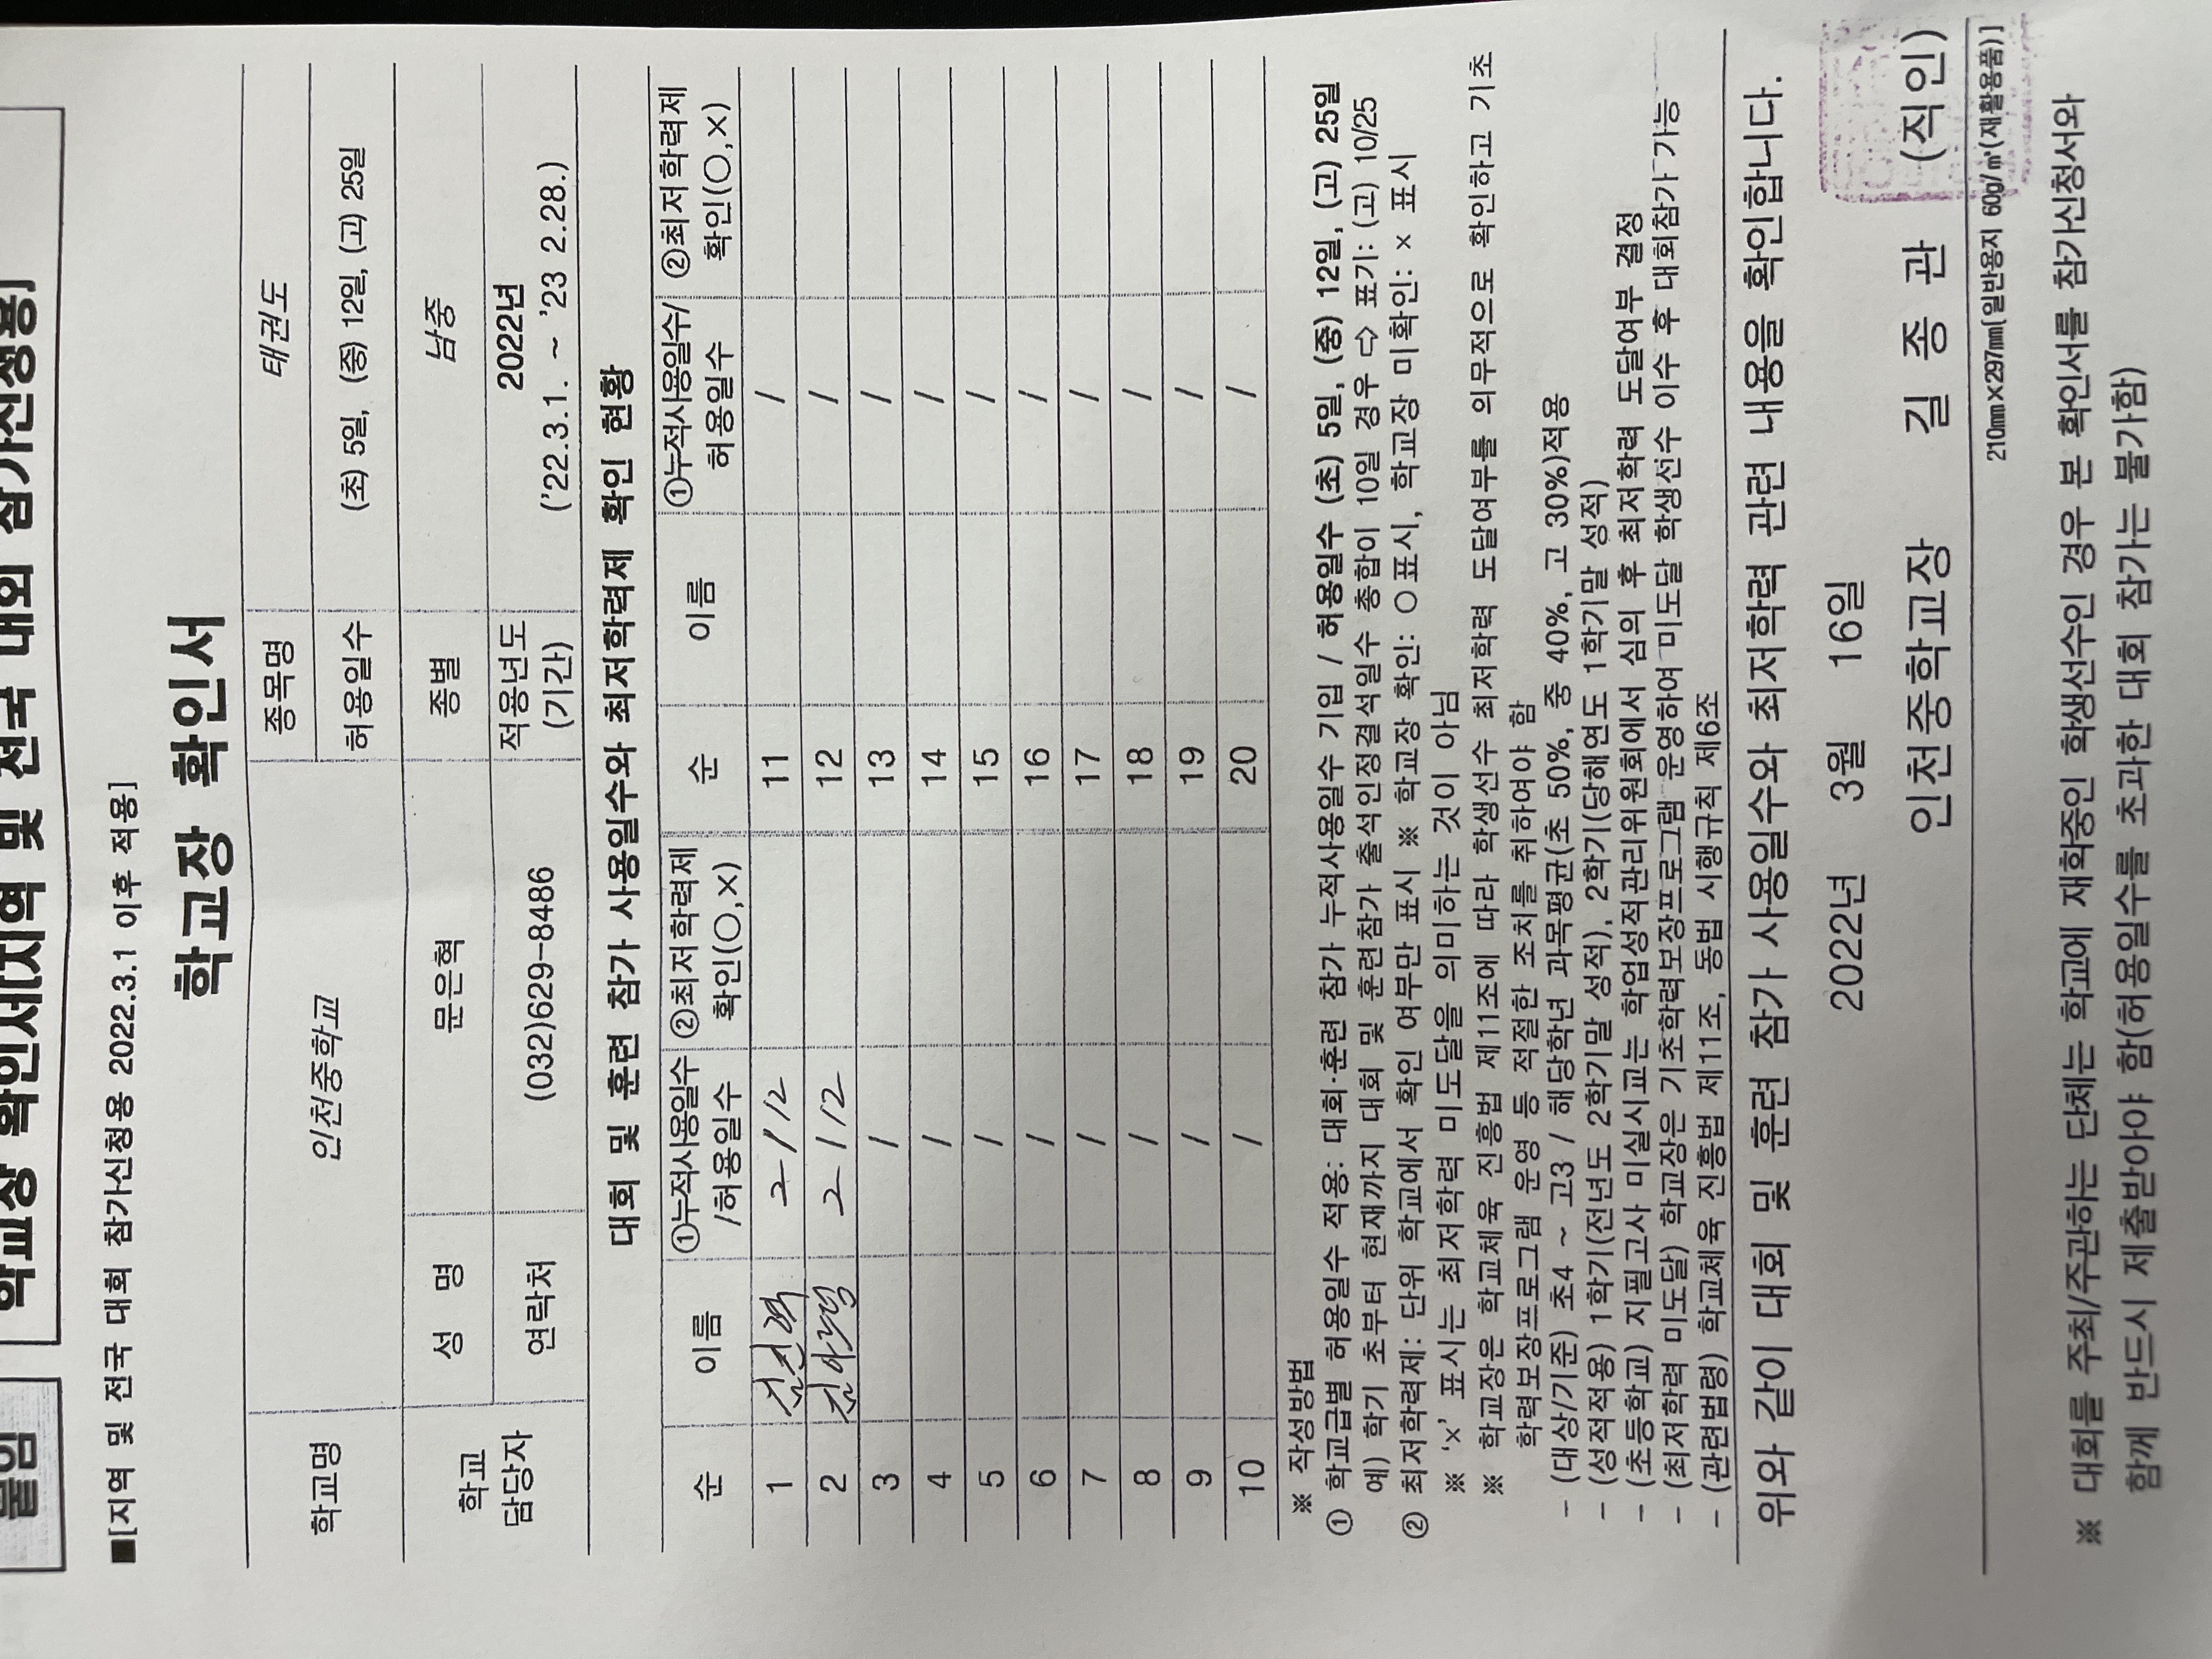 붙임
학교장 확인서(지역 및 전국 대회 참가신청용)
■[지역 및 전국 대회 참가신청용 2022.3.1 이후 적용]
학교장 확인서
학교명 인천중학교 종목명 태권도
허용일수 (초) 5일, (중) 12일, (고) 25일
학교 담당자 성 명 문은혁 종별 남중
연락처 (032)629-8486 적용년도 (기간) 2022년 ('22.3.1. ~ '23 2.28.)
대회 및 훈련 참가 사용일수와 최저학력제 확인 현황
순 이름 ①누적사용일수 /허용일수 ②최저학력제 확인(○,×) 순 이름 ①누적사용일수/ 허용일수 ②최저학력제 확인(○,×)
1 2/12 11 /
2 2/12 12 /
3 / 13 /
4 / 14 /
5 / 15 /
6 / 16 /
7 / 17 /
8 / 18 /
9 / 19 /
10 / 20 /
※ 작성방법
① 학교급별 허용일수 적용: 대회·훈련 참가 누적사용일수 기입 / 허용일수 (초) 5일, (중) 12일, (고) 25일
예) 학기 초부터 현재까지 대회 및 훈련참가 출석인정결석일수 총합이 10일 경우 ⇨ 표기: (고) 10/25
② 최저학력제: 단위 학교에서 확인 여부만 표시 ※ 학교장 확인: ○ 표시, 학교장 미확인: × 표시
※ '×' 표시는 최저학력 미도달을 의미하는 것이 아님
※ 학교장은 학교체육 진흥법 제11조에 따라 학생선수 최저학력 도달여부를 의무적으로 확인하고 기초
학력보장프로그램 운영 등 적절한 조치를 취하여야 함
- (대상/기준) 초4 ~ 고3 / 해당학년 과목평균(초 50%, 중 40%, 고 30%)적용
- (성적적용) 1학기(전년도 2학기말 성적), 2학기(당해연도 1학기말 성적)
- (초등학교) 지필고사 미실시교는 학업성적관리위원회에서 심의 후 최저학력 도달여부 결정
- (최저학력 미도달) 학교장은 기초학력보장프로그램 운영하여 미도달 학생선수 이수 후 대회참가 가능
- (관련법령) 학교체육 진흥법 제11조, 동법 시행규칙 제6조
위와 같이 대회 및 훈련 참가 사용일수와 최저학력 관련 내용을 확인합니다.
2022년 3월 16일
인천중학교장 길 종 관 (직인)
210㎜×297㎜[일반용지 60g/㎡(재활용품)]
※ 대회를 주최/주관하는 단체는 학교에 재학중인 학생선수인 경우 본 확인서를 참가신청서와
함께 반드시 제출받아야 함(허용일수를 초과한 대회 참가는 불가함)